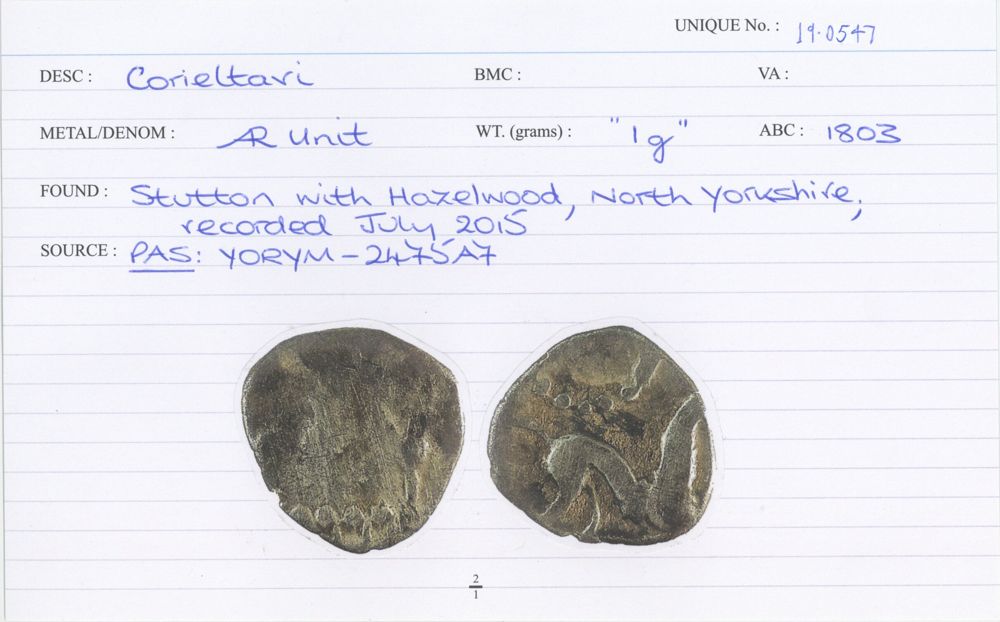 UNIQUE No. : 19.0547
DESC : Corieltavi BMC : VA :
METAL/DENOM : AR Unit WT. (grams) : "1g" ABC : 1803
FOUND : Stutton with Hazelwood, North Yorkshire,
recorded July 2015
SOURCE : PAS: YORYM-2475A7
2
1